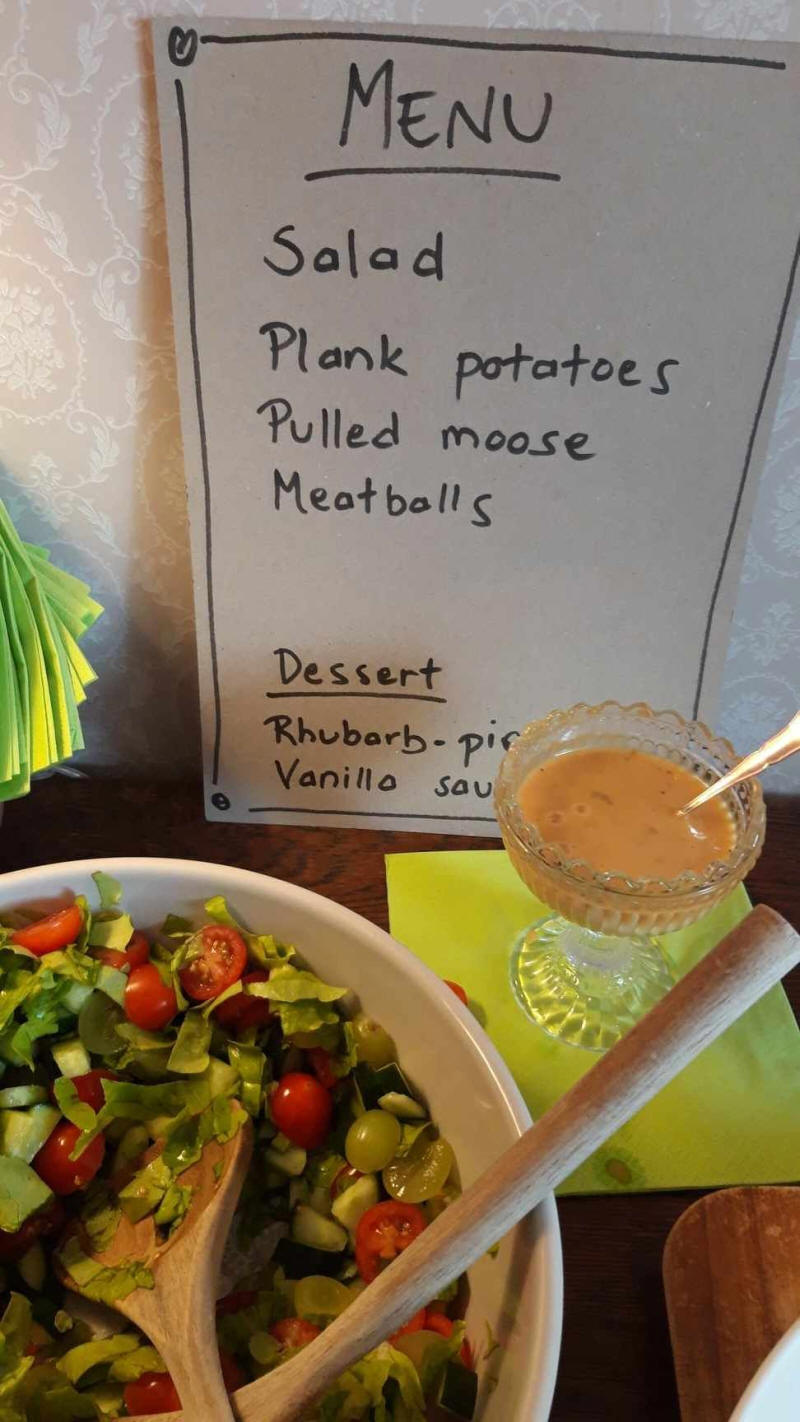 MENU
Salad
Plank potatoes
Pulled moose
Meatballs
Dessert
Rhubarb-pie
Vanilla